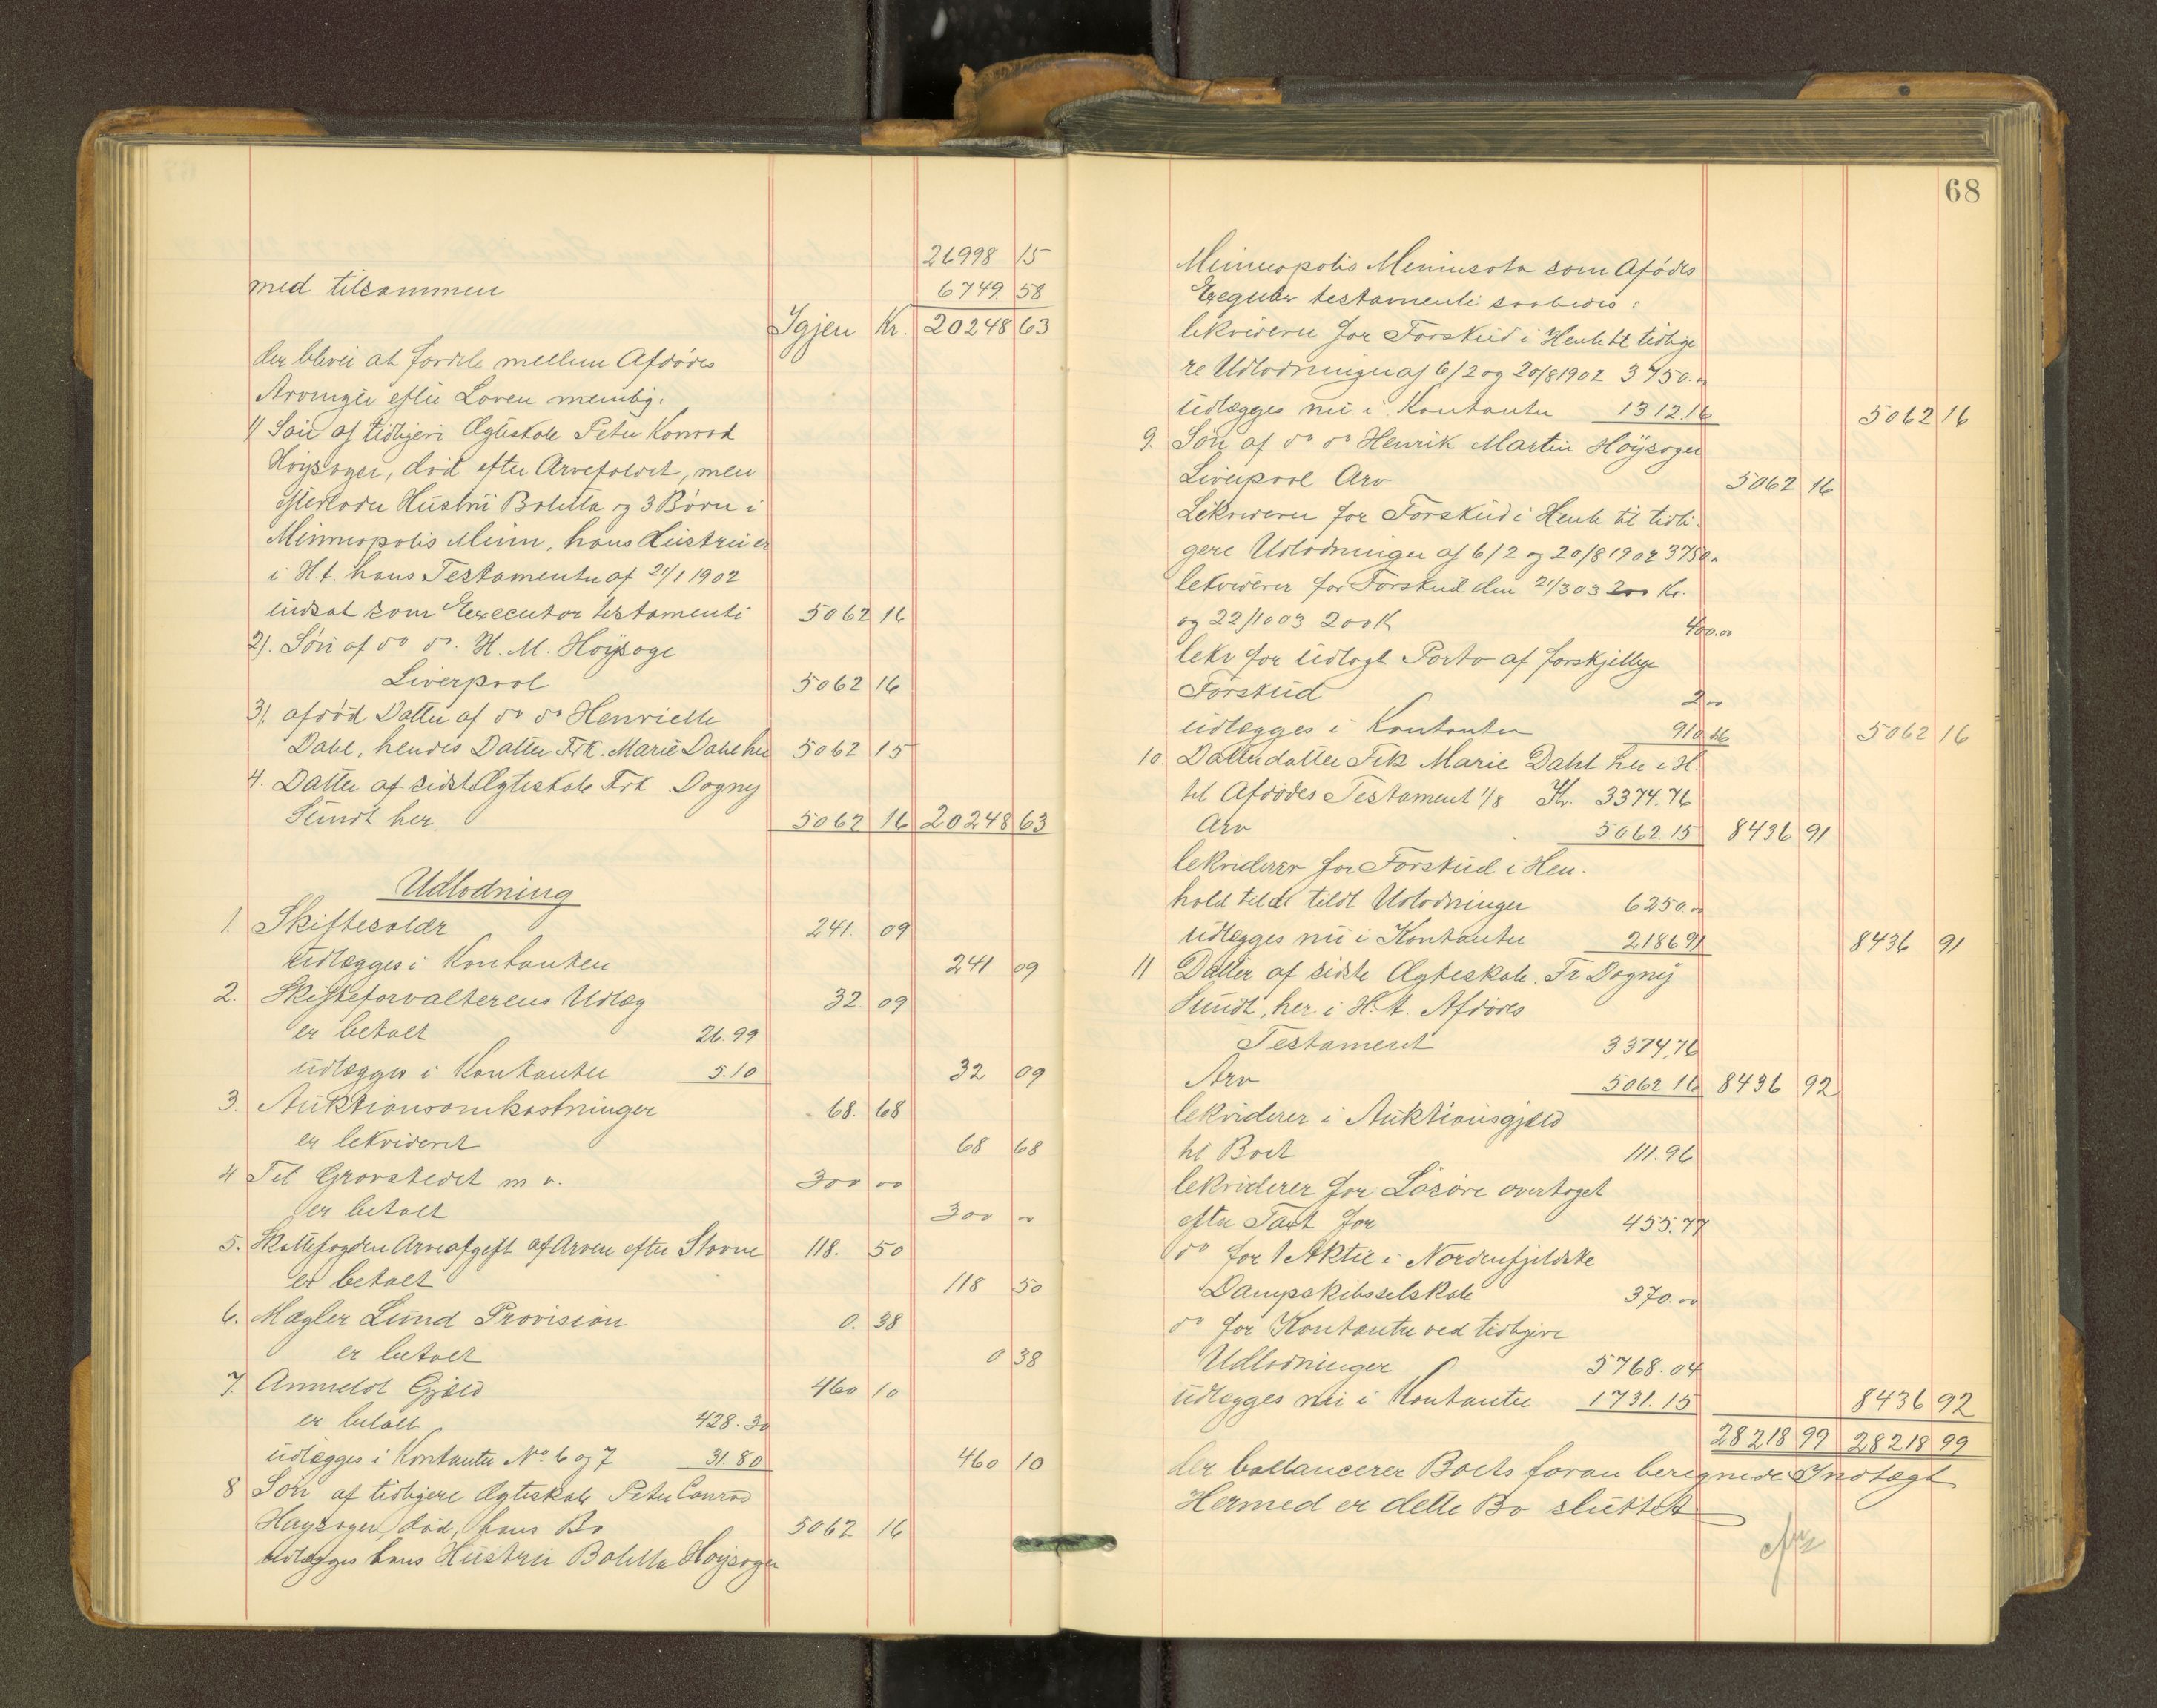 26998 15
med tilsammen 6749. 58
Igjen Kr. 20248 63
der blevei at fordele mellem Afdødes
Arvinger efter Loven nemlig:
1/ Søn af tidligere Ægteskab Peter Konrad
Høysager, død efter Arvefaldet, men
efterlader Hustru Boletta og 3 Børn i
Minneapolis Minn, hans Hustru er
i H.t. hans Testamente af 21/1 1902
indsat som Executor testamenti 5062 16
2/. Søn af do do. H. M. Høysage
Liverpool 5062 16
3/. afdød Datter af do do Henriette
Dahl, hendes Datter Frk. Marie Dahl her 5062 15
4. Datter af sidste Ægteskab Frk Dagny
Sundt her. 5062 16 20248 63
Udlodning
1. Skiftesalær 241. 09
udlægges i Kontanten 241 09
2. Skifteforvalterens Udlæg 32. 09
er betalt 26.99
udlægges i Kontanter 5.10 32 09
3. Auktionsomkostninger 68. 68
er lekvideret 68 68
4 Til Gravstedet m v. 300 00
er betalt 300 00
5. Skattefogden Arveafgift af Arven efter Stavne 118. 50
er betalt 118 50
6. Mægler Lund Provision 0. 38
er betalt 0 38
7. Anmeldt Gjæld 460 10
er betalt 428.30
udlægges i Kontanter No. 6 og 7 31.80 460 10
8 Søn af tidligere Ægteskab Peter Conrad
Høysager, død, hans Bo 5062 16
udlægges hans Hustru Boletta Høysager
68
Minneapolis Minnesota som Afdødes
testamenti saaledes:
lekviderer for Forskud i Henh til tidlige
re Udlodninger af 6/2 og 20/8 1902 3750.00
udlægges nu i Kontanter 1312.16 5062 16
9. Søn af do do Henrik Martin Høysager
Liverpool Arv 5062 16
Lekviderer for Forskud i Henh til tidli-
gere Udlodninger af 6/2 og 20/8 1902 3750.00
lekviderer for Forskud den 21/3 03 200 Kr.
og 22/10 03 200 K 400.00
lekv for udlagt Porto af forskjellige
Forskud 2.00
udlægges i Kontanter 910.16 5062 16
10. Datterdatter Frk Marie Dahl her i H.
til Afdødes Testament 1/8 Kr. 3374.76
Arv 5062.15 8436 91
lekviderer for Forskud i Hen-
hold til de tidl Udlodninger 6250.00
udlægges nu i Kontanter 2186 91 8436 91
11 Datter af sidste Ægteskab. Fr Dagny
Sundt, her i H. t. Afdødes
Testament 3374,76
Arv 5062 16 8436 92
lekviderer i Auktionsgjæld
til Boet 111.96
lekviderer for Løsøre overtaget
efter Taxt for 455.77
do for 1 Aktie i Nordenfjeldske
Dampskibsselskab 370.00
do for Kontanter ved tidligere
Udlodninger 5768.04
udlægges nu i Kontanter 1731.15 8436 92
28218 99 28218 99
der ballancerer Boets foran beregnede Indtægt
Hermed er dette Bo sluttet